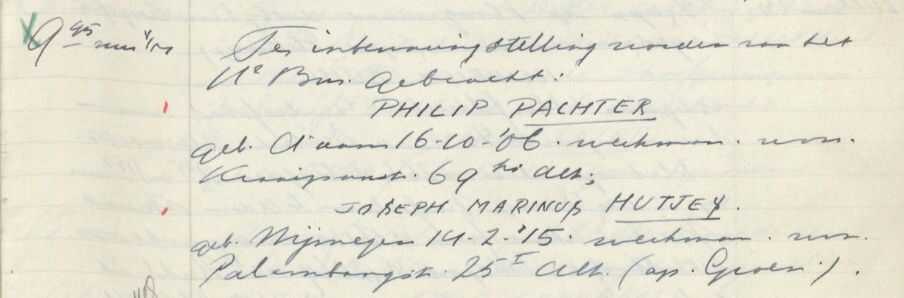 9 45 nm
Ter inbewaringstelling worden van het
Ue Bur. gebracht:
PHILIP PACHTER
geb. A'dam 16-10-'06. werkman. won.
69 hs Ald;
JOSEPH MARINUS HUTJEY.
geb. Nijmegen 14-2-'15. werkman. won.
Palembangstr. 25 I Ald. (op. Groen.).